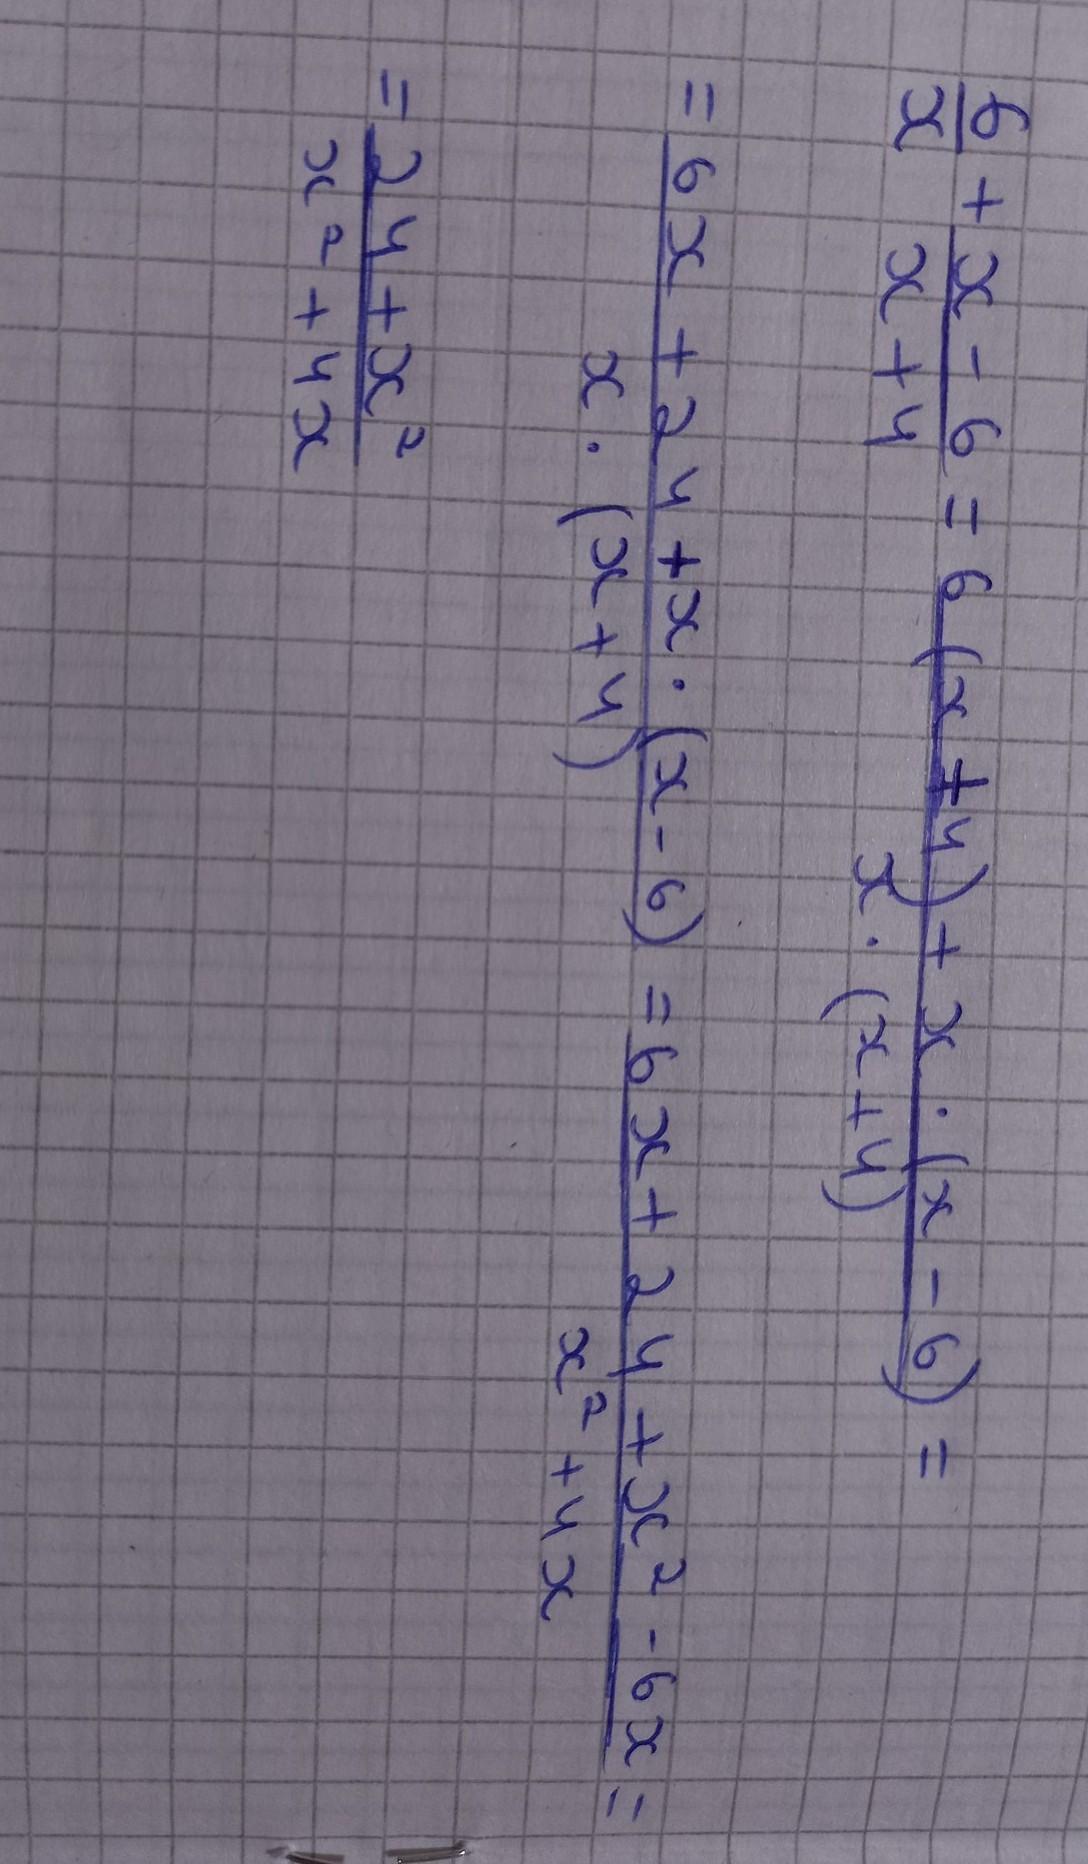 6/x + (x - 6)/(x + 4) = (6(x + 4) + x · (x - 6))/(x · (x + 4)) =
= (6x + 24 + x · (x - 6))/(x · (x + 4)) = (6x + 24 + x² - 6x)/(x² + 4x) =
= (24 + x²)/(x² + 4x)